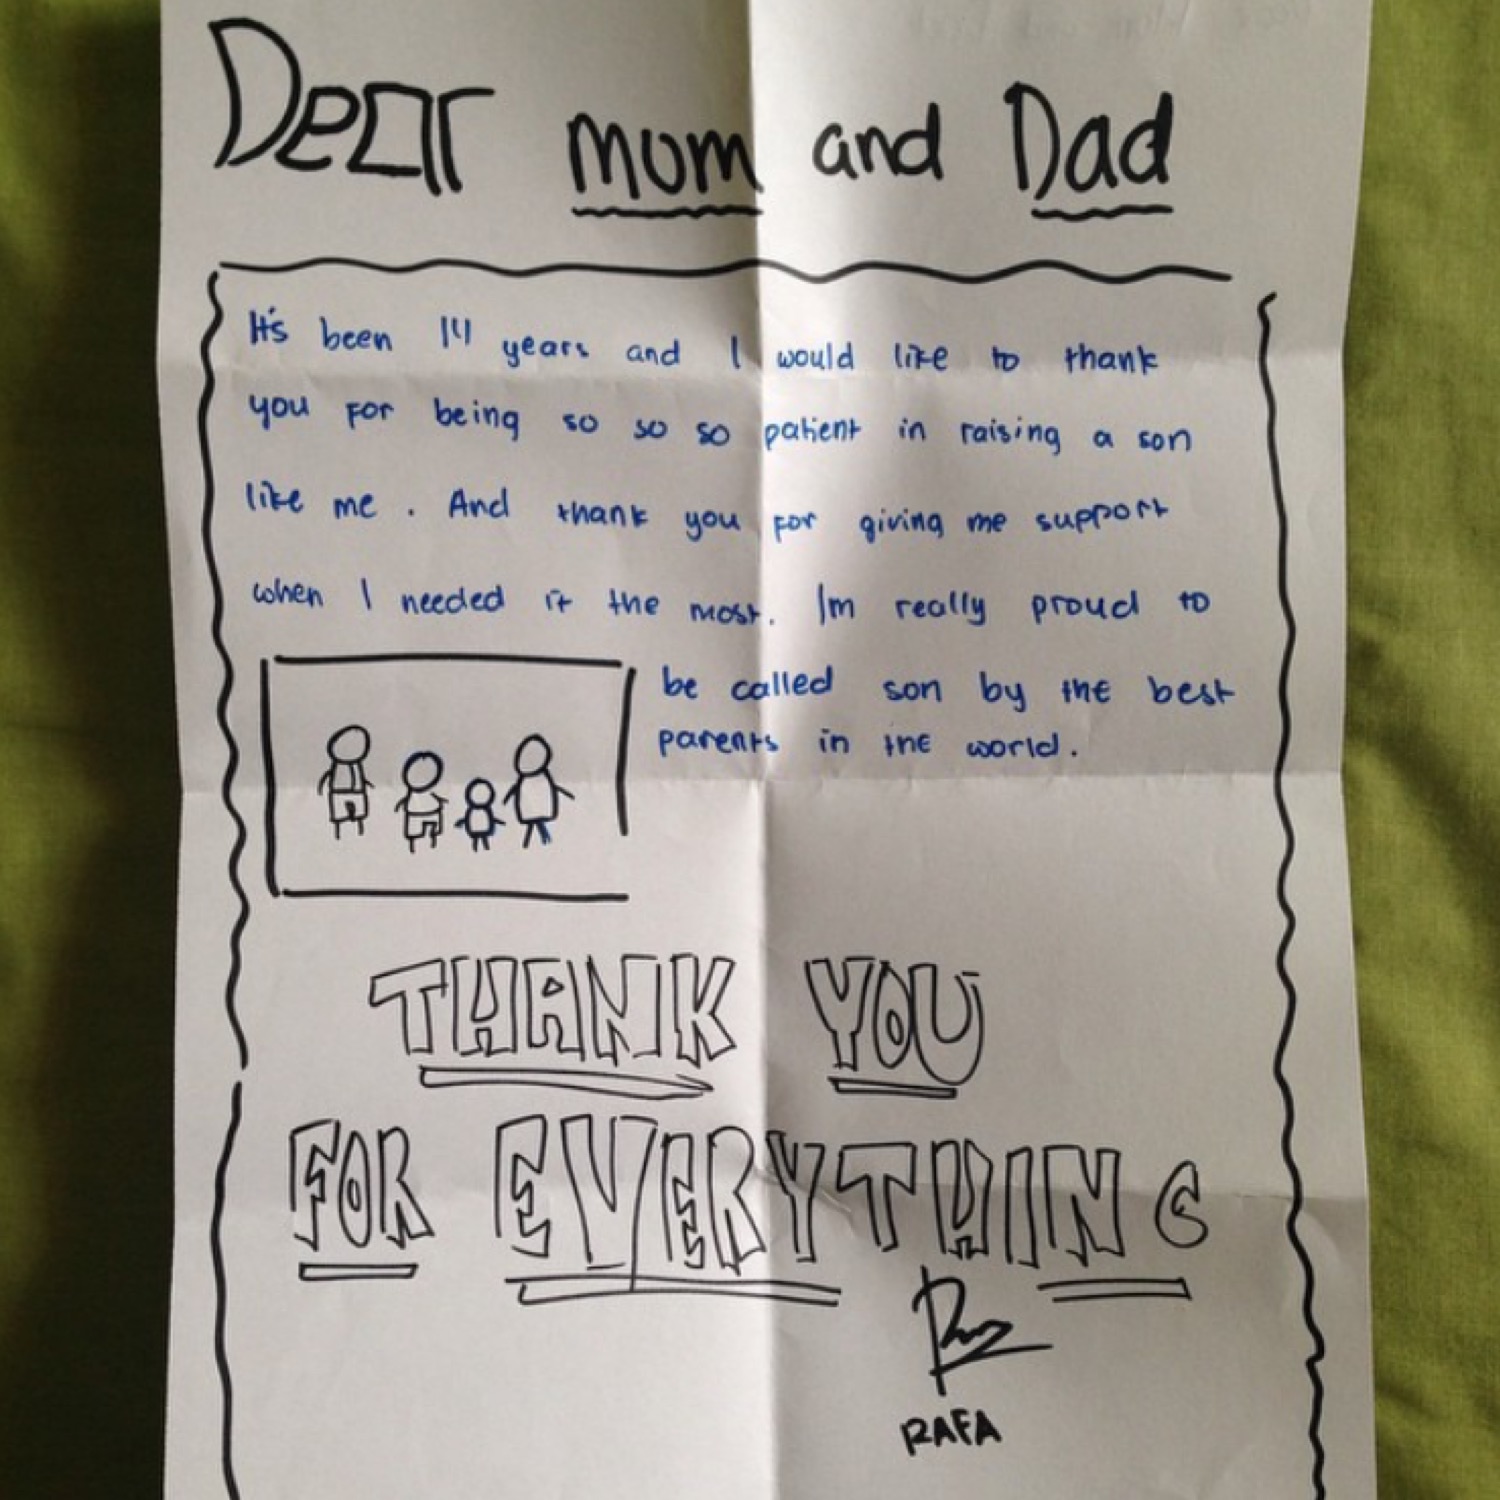 Dear mum and Dad
It's been 14 years and I would like to thank
you for being so so so patient in raising a son
like me. And thank you for giving me support
when I needed it the most. Im really proud to
be called son by the best
parents in the world.
THANK YOU
FOR EVERYTHING
RAFA